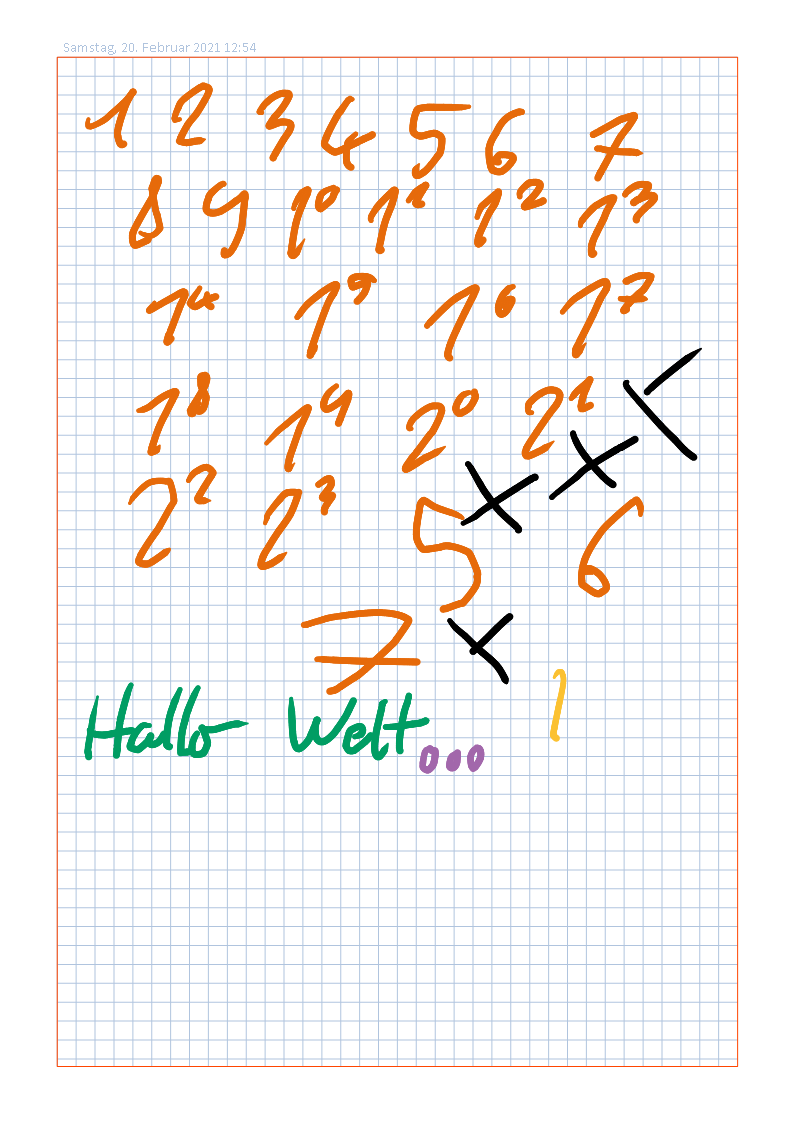 Samstag, 20. Februar 2021 12:54
1 2 3 4 5 6 7
8 9 10 11 12 13
14 15 16 17
18 19 20 21
22 23 5 6
7
Hallo Welt...